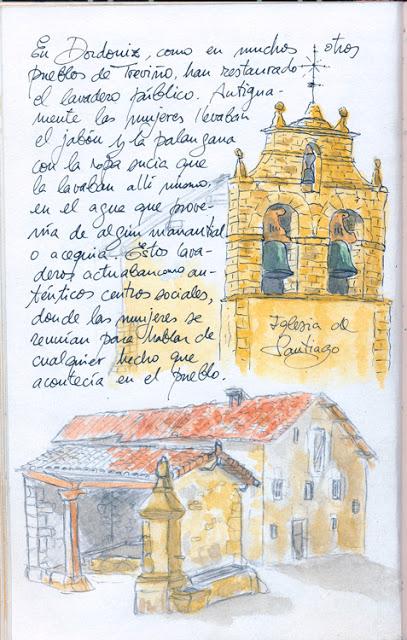 En Dordoniz, como en muchos otros
pueblos de Treviño, han restaurado
el lavadero público. Antigua-
mente las mujeres llevaban
el jabón y la palangana
con la ropa sucia que
la lavaban allí mismo,
en el agua que prove-
nía de algún manantial
o acequia. Estos lava-
deros actuaban como au-
ténticos centros sociales,
donde las mujeres se
reunían para hablar de
cualquier hecho que
acontecía en el pueblo.
Iglesia de
Santiago